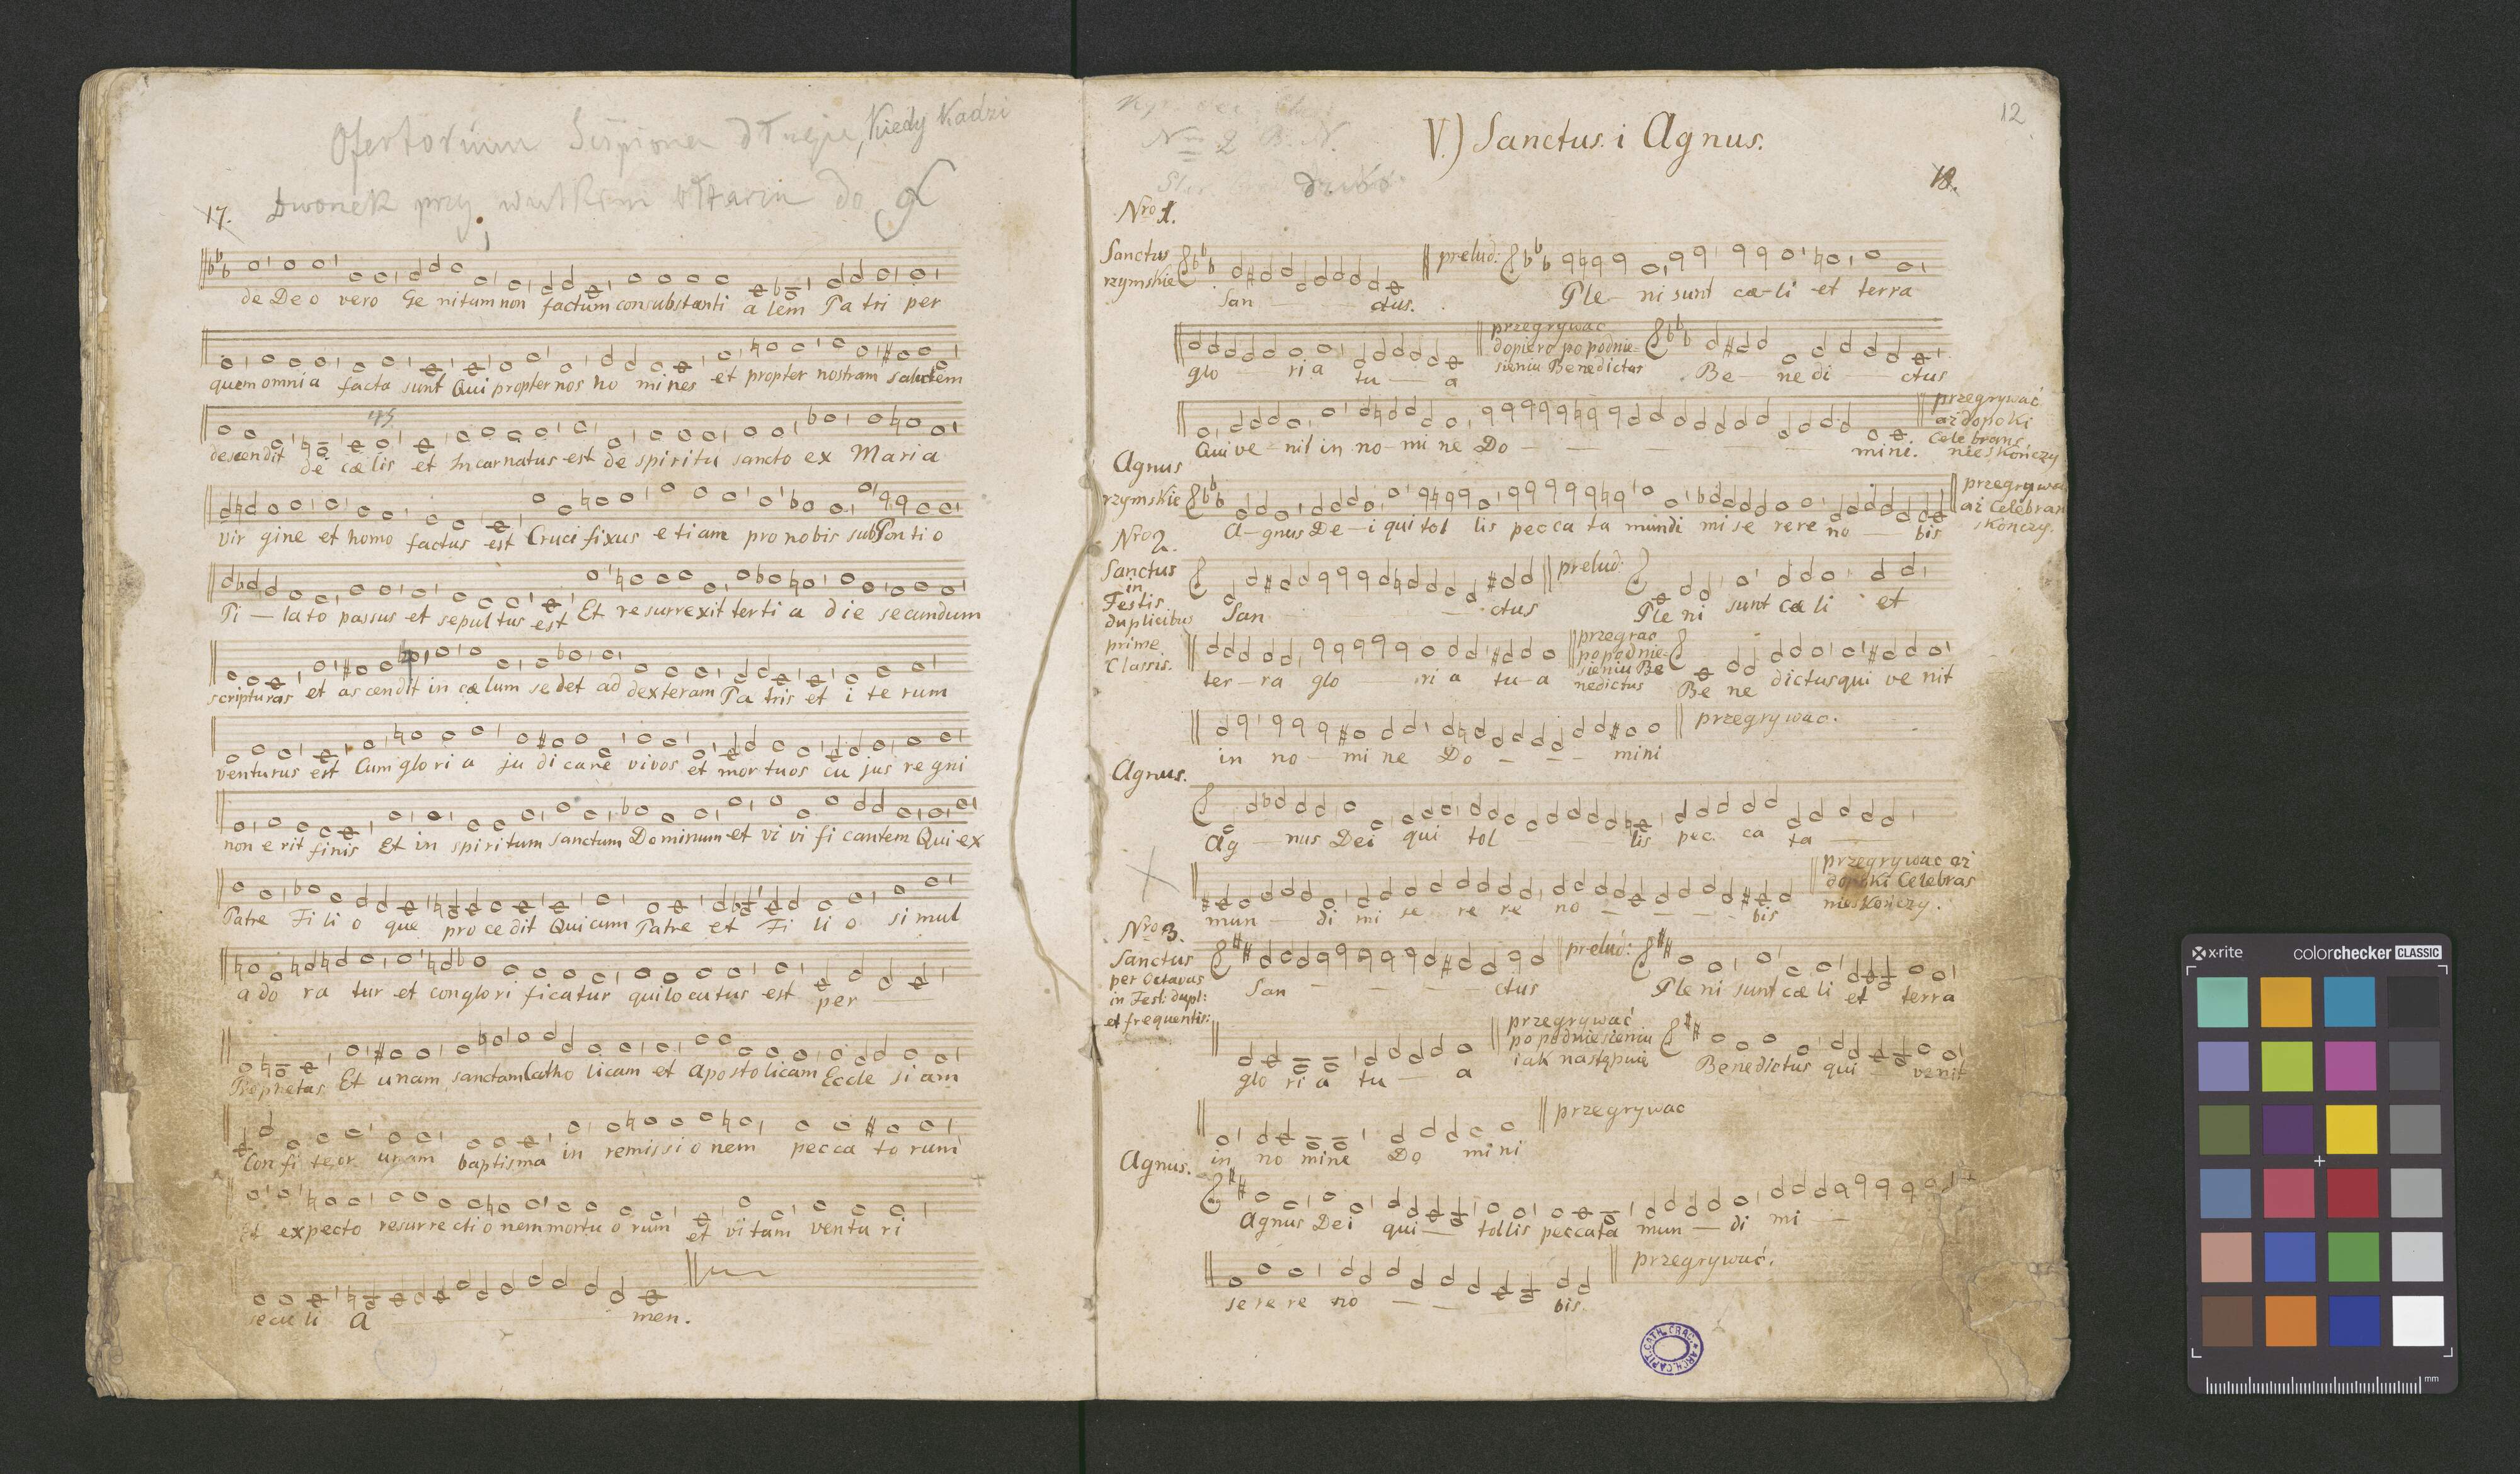 Kiedy Kadzi
Dwonek przy
17.
de Deo vero Ge nitum non factum consubstanti a lem Pa tri per
quem omnia facta sunt Qui propter nos ho mi nes et propter nostram salutem
descendit de cælis et Incarnatus est de spiritu sancto ex Maria
vir gine et homo factus est Cruci fixus etiam pro nobis sub Pon ti o
Pi — lato passus et sepul tus est Et resurrexit terti a die secundum
scripturas et as cendit in cælum sedet ad dexteram Pa tris et i te rum
venturus est Cum glo ri a ju di care vivos et mor tuos cu jus re gni
non e rit finis Et in spiritum sanctum Dominum et vi vi fi cantem Qui ex
Patre Fi li o que pro ce dit Qui cum Patre et Fi li o simul
a do ra tur et conglo ri ficatur qui lo cutus est per
Prophetas Et unam sanctam Catho licam et Aposto licam Eccle si am
Con fi teor unam baptisma in remissi o nem pecca to rum
Et expecto resurre cti o nem mortu o rum et vi tam ventu ri
secu li A men.
12
V.) Sanctus i Agnus.
18.
Nro 1.
Sanctus
rzymskie
prelud:
San ctus. Ple — ni sunt cæ-li et terra
przegrywac
dopiero po podnie-
sieniu Benedictus
glo — ri a tu — a Be — ne di — ctus
Qui ve — nit in no — mi ne Do — — — mini.
przegrywać
aż dopoki
Celebrans
nieskończy
Agnus
rzymskie
A — gnus De — i qui tol lis pecca ta mundi mise rere no — bis
aż Celebran
skończy.
Nro 2.
Sanctus
in
Festis
duplicibus
prime
Classis.
prelud:
San ctus Ple ni sunt cæ li et
przegrac
po podnie-
sieniu Be
nedictus
ter — ra glo — ri a tu — a Be ne dictus qui ve nit
przegrywac.
in no — mi ne Do — — — mini
Agnus.
Ag — nus Dei qui tol lis pec. ca ta
przegrywac aż
dopoki Celebras
nieskończy.
mun — di mi se re re no — — — bis
Nro 3.
Sanctus
per Octavas
in Fest: dupl:
et frequentis:
prelud:
San — — — — ctus Ple ni sunt cæ li et terra
przegrywać
po podniesieniu
iak następuie
glo ri a tu — a Benedictus qui — venit
przegrywac
in no mine Do mini
Agnus.
Agnus Dei qui — tollis peccata mun — di mi —
przegrywać.
se re re no — — bis.
ARCH. CAPIT. CATH. CRAC.
x-rite colorchecker CLASSIC
mm